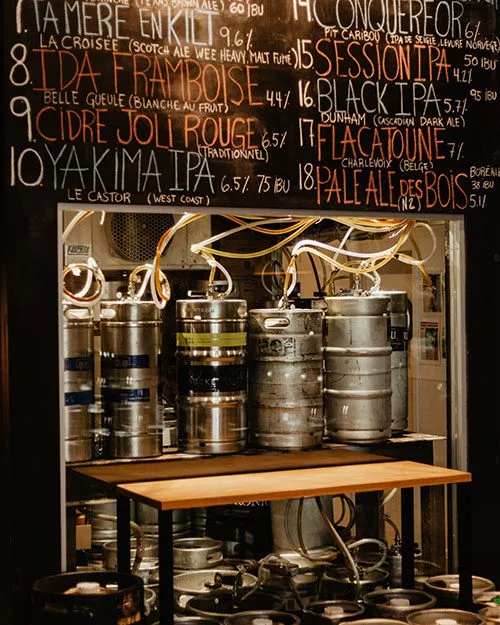 60 IBU
7. TA MÈRE EN KILT 9.6%
LA CROISEE (SCOTCH ALE WEE HEAVY, MALT FUMÉ)
8. IDA FRAMBOISE 4.4%
BELLE GUEULE (BLANCHE AU FRUIT)
9. CIDRE JOLI ROUGE 6.5%
(TRADITIONNEL)
10. YAKIMA IPA 6.5% 75 IBU
LE CASTOR (WEST COAST)
14. CONQUEROR 6%
PIT CARIBOU (IPA DE SEIGLE, LEVURE NORVÉG
15. SESSION IPA 4.2% 50 IBU
16. BLACK IPA 5.7% 95 IBU
DUNHAM (CASCADIAN DARK ALE)
17 FLACATOUNE 7%
CHARLEVOIX (BELGE)
18. PALE ALE DES BOIS BORÉALE 38 IBU 5.1%
(N2)